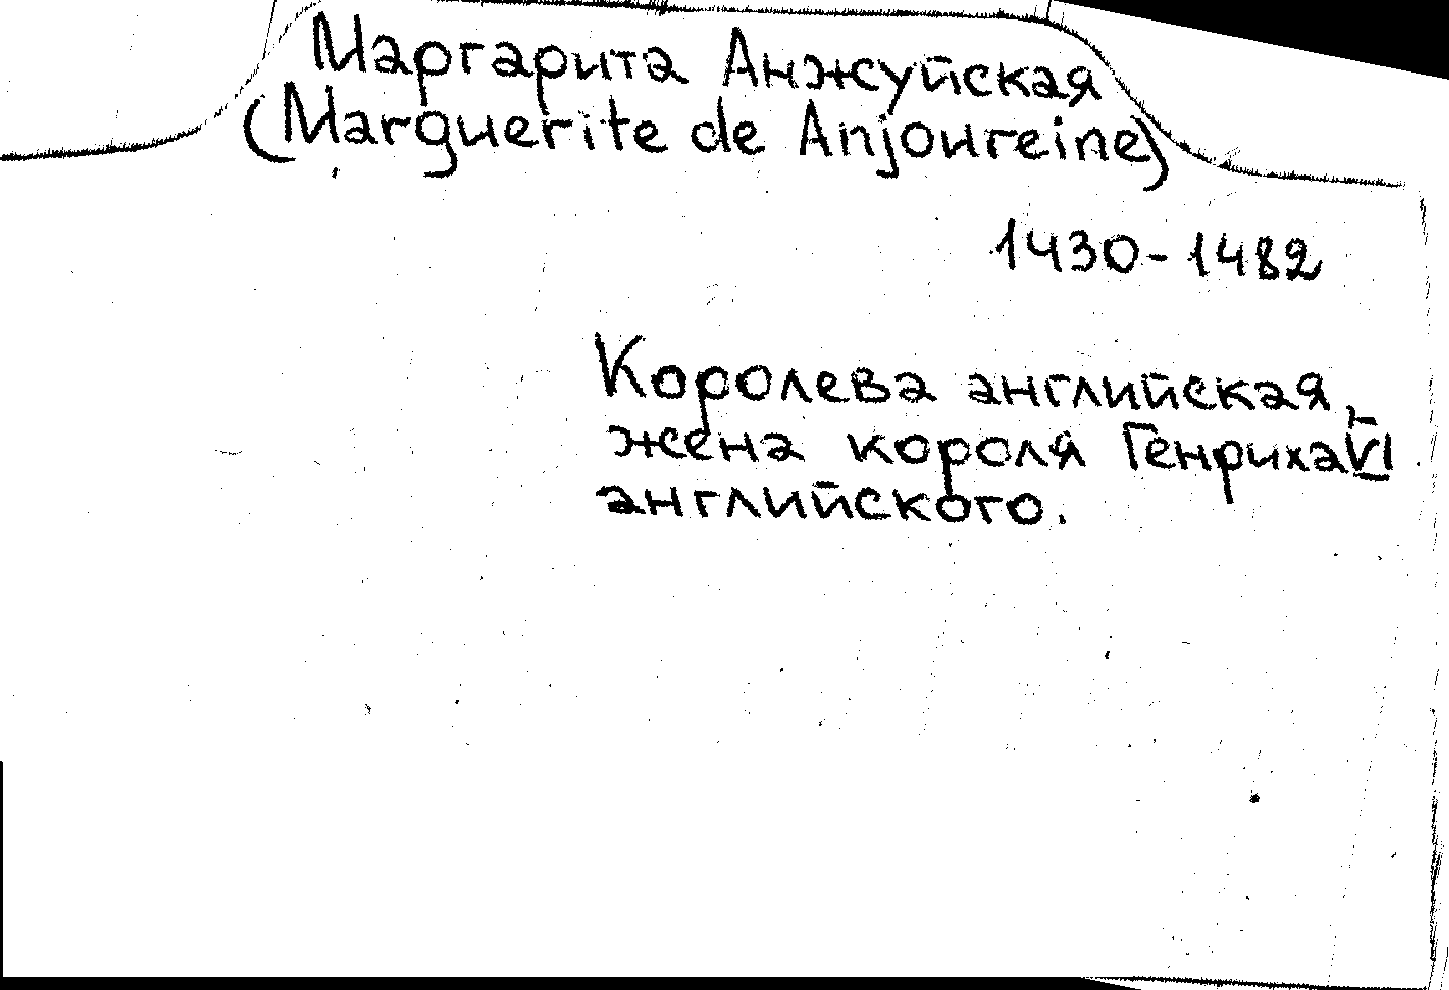 Маргарита Анжуйская
(Marguerite de Anjoureine)
1430-1482
Королева английская,
жена короля Генриха VI
английского.